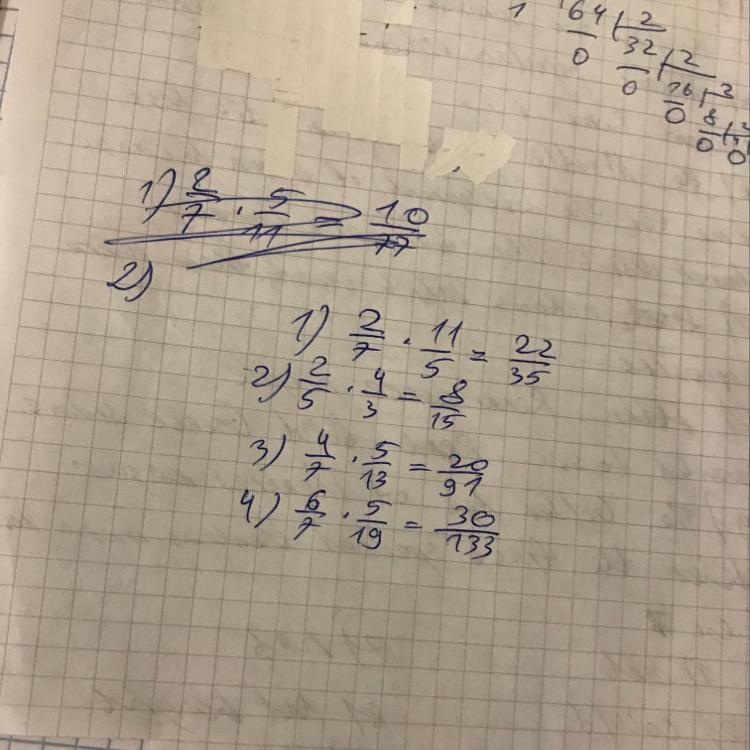 1 64 | 2
0 32 | 2
0 16 | 2
0 8 | 2
0
1) 2/7 · 5/11 = 10/77
2)
1) 2/7 · 11/5 = 22/35
2) 2/5 · 4/3 = 8/15
3) 4/7 · 5/13 = 20/91
4) 6/7 · 5/19 = 30/133